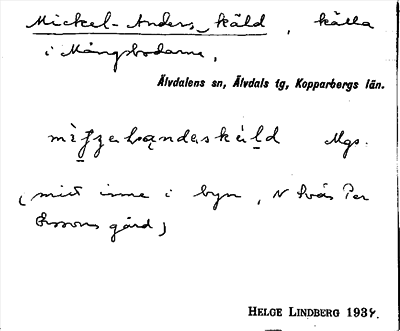 Mickel-Anders-käld, källa
i Mångsbodarna,
Älvdalens sn, Älvdals tg, Kopparbergs län.
Mgs.
(mitt inne i byn, N tvås Per
Erssons gård)
HELGE LINDBERG 1934.